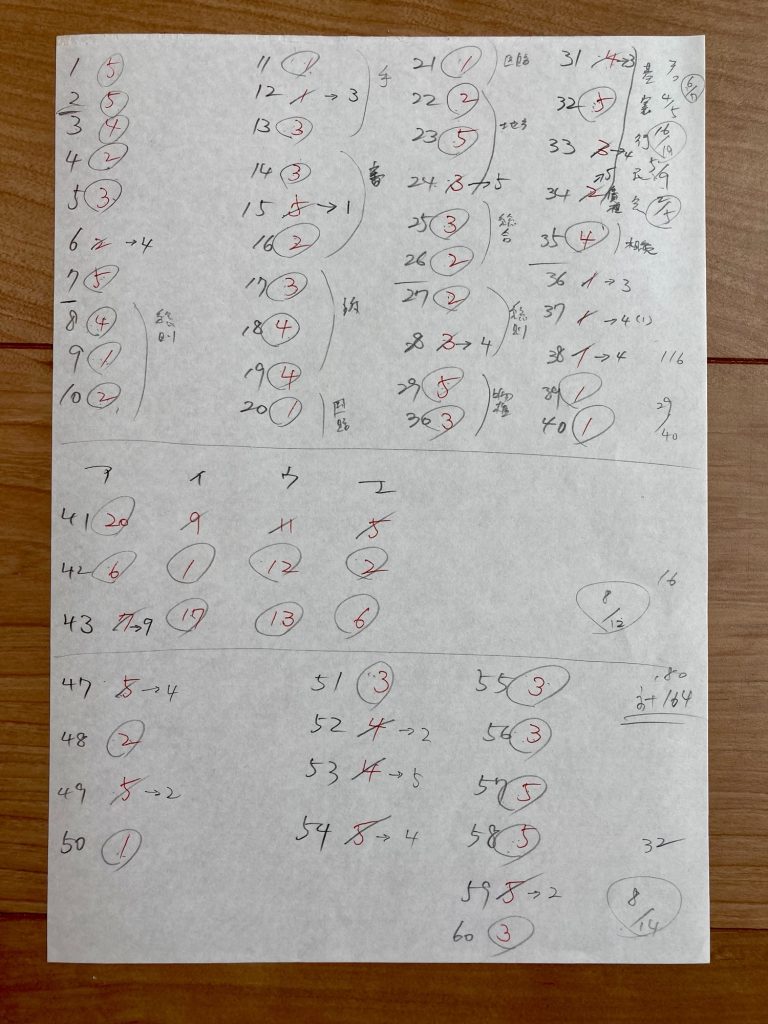 1 5
2 5
3 4
4 2
5 3
6 2 → 4
7 5
8 4
9 1
10 2
総則
11 1
12 1 → 3
13 3
手
14 3
15 5 → 1
16 2
審
17 3
18 4
19 4
20 1
国賠
21 1
22 2
23 5
24 3 → 5
地方
25 3
26 2
総合
27 2
8 3 → 4
総則
29 5
30 3
物権
31 4 → 3
32 5
33 3 → 4
34 2 → 5
債権
35 4
相続
36 1 → 3
37 1 → 4 (1)
38 1 → 4
39 1
40 1
基
4/5
行 16/19
116
29/40
ア イ ウ エ
41 20 9 11 5
42 6 1 12 2
43 7 → 9 17 13 6
16
8/12
47 5 → 4
48 2
49 5 → 2
50 1
51 3
52 4 → 2
53 4 → 5
54 5 → 4
55 3
56 3
57 5
58 5
59 5 → 2
60 3
計 164
32
8/14